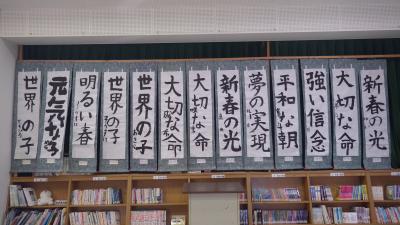 新春の光
大切な命
強い信念
平和な朝
夢の実現
新春の光
大切な命
大切な命
世界の子
世界の子
明るい春
元気な子
世界の子